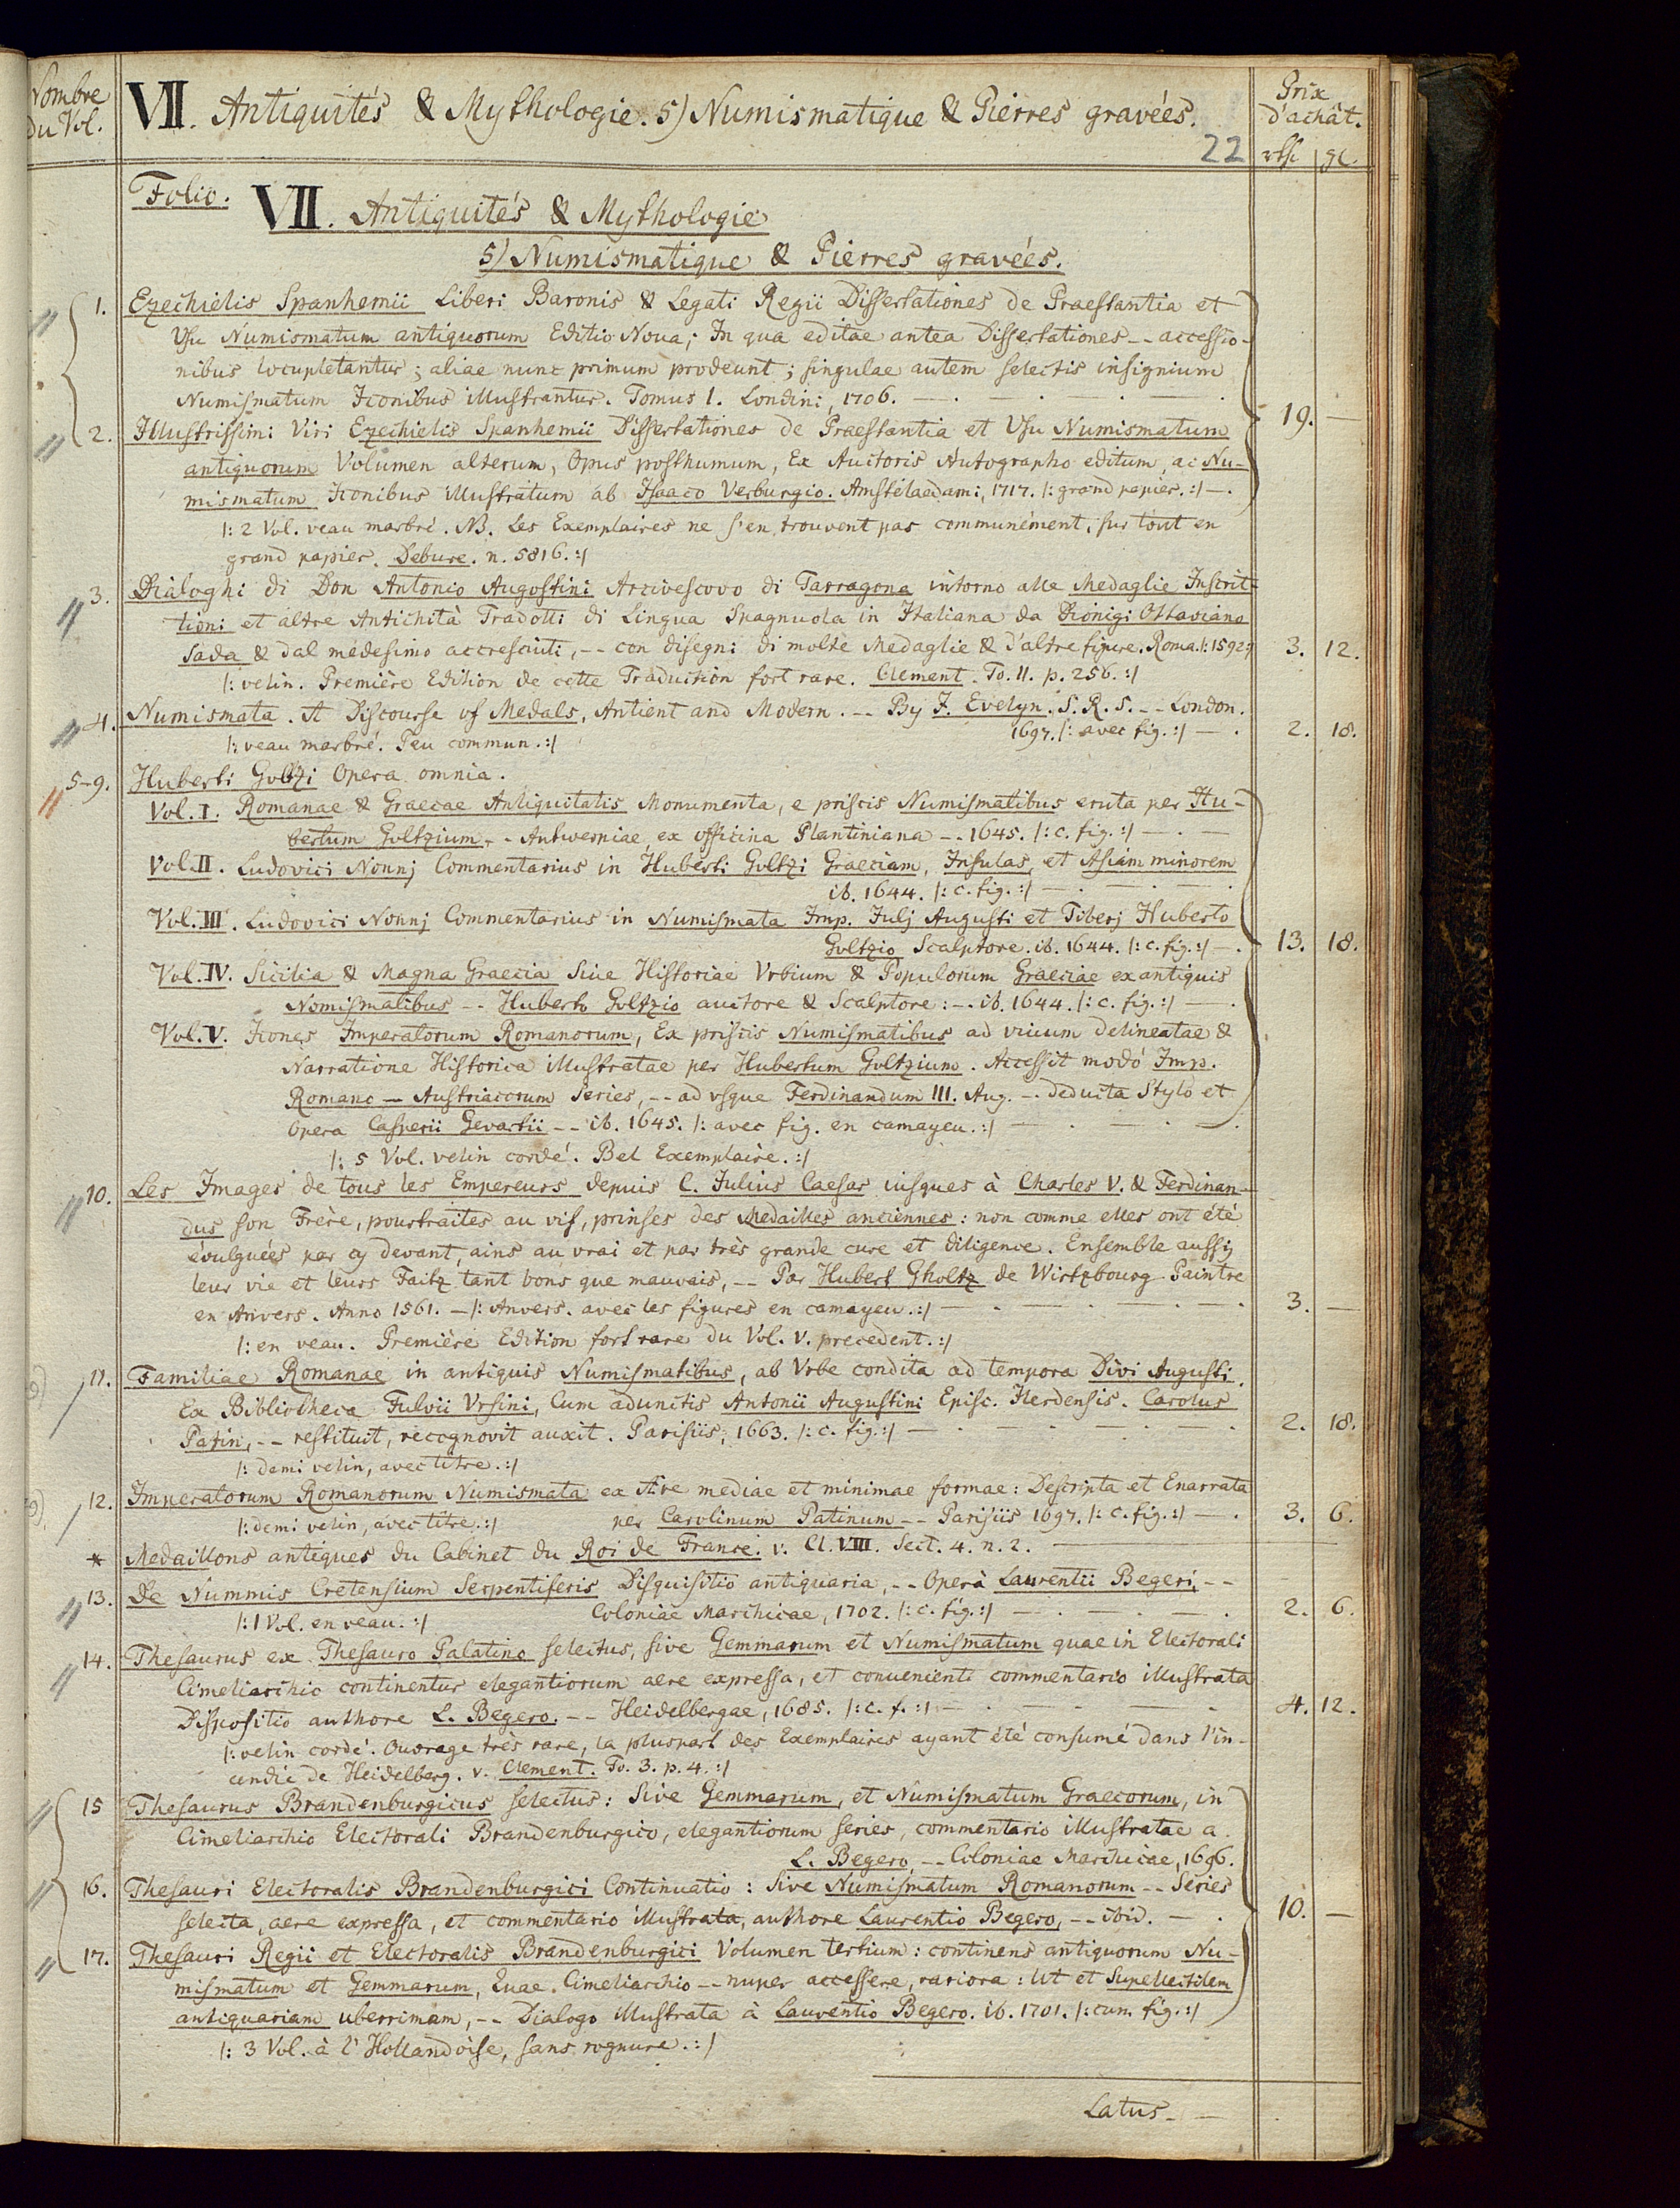 Nombre
du Vol.
VII. Antiquités & Mythologie. 5) Numismatique & Pierres gravées.
Prix
d'achât.
22
rth gl.
Folio.
VII. Antiquités & Mythologie
5) Numismatique & Pierres gravées.
1. Ezechielis Spanhemii Liberi Baronis & Legati Regii Dissertationes de Praestantia et
Usu Numismatum antiquorum Editio Nova; In qua editae antea Dissertationes -- accessio-
nibus locupletantur; aliae nunc primum prodeunt; singulae autem selectis insignium
Numismatum Iconibus illustrantur. Tomus I. Londini, 1706. — . — . — .
2. Illustrissimi Viri Ezechielis Spanhemii Dissertationes de Praestantia et Usu Numismatum 19. —
antiquorum Volumen alterum, Opus posthumum, Ex Auctoris Autographo editum, ac Nu-
mismatum Iconibus illustratum ab Isaaco Verburgio. Amstelaedami, 1717. /: grand papier. :/ — .
/: 2 Vol. veau marbré. NB. Les Exemplaires ne s'en trouvent pas communément, sur tout en
grand papier. Debure. n. 5816. :/
3. Dialoghi di Don Antonio Augostini Arcivescovo di Tarragona intorno alle Medaglie Inscrit-
tioni et altre Antichità Tradotti di Lingua Spagnuola in Italiana da Dionigi Ottaviano
Sada & dal medesimo accresciuti, -- con disegni di molte Medaglie & d'altre figure. Roma. /: 1592 :/ 3. 12.
/: velin. Première Edition de cette Traduction fort rare. Clement. To. II. p. 256. :/
4. Numismata. A Discourse of Medals, Antient and Modern. -- By J. Evelyn. S. R. S. -- London.
/: veau marbré. Peu commun. :/ 1697. /: avec fig. :/ — . 2. 18.
5-9. Huberti Goltzi Opera omnia.
Vol. I. Romanae & Graecae Antiquitatis Monumenta, e priscis Numismatibus eruta per Hu-
bertum Goltzium. -- Antwerpiae, ex officina Plantiniana -- 1645. /: c. fig. :/ — . —
Vol. II. Ludovici Nonnj Commentarius in Huberti Goltzi Graeciam, Insulas, et Asiam minorem
ib. 1644. /: c. fig. :/ — . — . — .
Vol. III. Ludovici Nonnj Commentarius in Numismata Imp. Julj Augusti et Tiberj Huberto
Goltzio Scalptore. ib. 1644. /: c. fig. :/ — . 13. 18.
Vol. IV. Sicilia & Magna Graecia Sive Historiae Vrbium & Populorum Graeciae ex antiquis
Nomismatibus -- Huberto Goltzio auctore & Scalptore: -- ib. 1644. /: c. fig. :/ — .
Vol. V. Icones Imperatorum Romanorum, Ex priscis Numismatibus ad vivum delineatae &
Narratione Historica illustratae per Hubertum Goltzium. Accessit modo Imp.
Romano — Austriacorum Series, -- ad vsque Ferdinandum III. Aug. -- deducta Stylo et
Opera Casperii Gevartii -- ib. 1645. /: avec fig. en camayeu. :/ — . — . — .
/: 5 Vol. velin cordé. Bel Exemplaire. :/
10. Les Images de tous les Empereurs depuis C. Julius Caesar iusques à Charles V. & Ferdinan-
dus son Frère, pourtraites au vif, prinses des Medailles anciennes: non comme elles ont été
évulguées par cy devant, ains au vrai et par très grande cure et diligence. Ensemble aussy
leur vie et leurs Faitz tant bons que mauvais, -- Par Hubert Gholtz de Wirtzbourg Paintre
en Anvers. Anno 1561. — /: Anvers. avec les figures en camayeu. :/ . — . — . — . 3. —
/: en veau. Première Edition fort rare du Vol. V. precedent. :/
11. Familiae Romanae in antiquis Numismatibus, ab Vrbe condita ad tempora Divi Augusti.
Ex Bibliotheca Fulvii Vrsini, Cum adunctis Antonii Augustini Episc. Ilerdensis. Carolus
Patin, -- restituit, recognovit auxit. Parisiis, 1663. /: c. fig. :/ — . — . — . 2. 18.
/: demi velin, avec titre. :/
12. Imperatorum Romanorum Numismata ex Aere mediae et minimae formae: Descripta et Enarrata
/: demi velin, avec titre. :/ per Carolinum Patinum -- Parisiis 1697. /: c. fig. :/ — . 3. 6.
* Medaillons antiques du Cabinet du Roi de France. v. Cl. VIII. Sect. 4. n. 2. —
13. De Nummis Cretensium Serpentiferis Disquisitio antiquaria, -- Operà Laurentii Begeri, --
/: 1 Vol. en veau. :/ Coloniae Marchicae, 1702. /: c. fig. :/ — . — . — . 2. 6.
14. Thesaurus ex Thesauro Palatino selectus, sive Gemmarum et Numismatum quae in Electorali
Cimeliarchio continentur elegantiorum aere expressa, et convenienti commentario illustrata
Dispositio authore L. Begero. -- Heidelbergae, 1685. /: c. f. :/ — . — . — . 4. 12.
/: velin cordé. Ouvrage très rare, la pluspart des Exemplaires ayant été consumé dans l'in-
cendie de Heidelberg. v. Clement. To. 3. p. 4. :/
15 Thesaurus Brandenburgicus selectus: Sive Gemmarum, et Numismatum Graecorum, in
Cimeliarchio Electorali Brandenburgico, elegantiorum series, commentario illustratae a.
L. Begero, -- Coloniae Marchicae, 1696.
16. Thesauri Electoralis Brandenburgici Continuatio: Sive Numismatum Romanorum -- Series
selecta, aere expressa, et commentario illustrata, authore Laurentio Begero, -- ibid. — . 10. —
17. Thesauri Regii et Electoralis Brandenburgici Volumen tertium: continens antiquorum Nu-
mismatum et Gemmarum, Quae Cimeliarchio -- nuper accessere, rariora: Ut et Supellectilem
antiquariam uberrimam, -- Dialogo illustrata à Laurentio Begero. ib. 1701. /: cum fig. :/
/: 3 Vol. à l'Hollandoise, sans rognure. :/
Latus. —